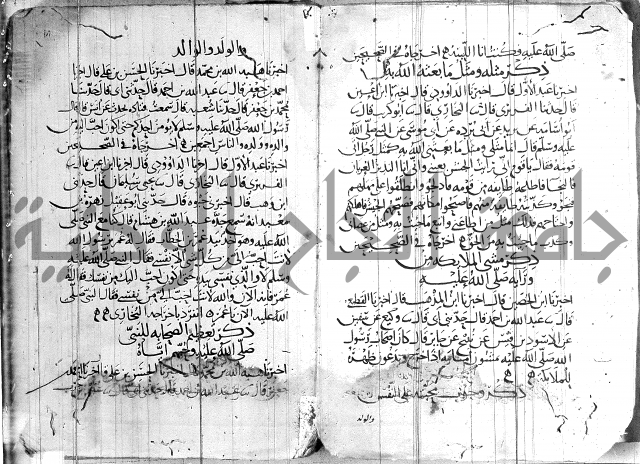 صلى الله عليه وكنت انا اللبنة اخرجاه في الصحيحين
ذكر مثله ومثل ما بعثه الله به
اخبرنا عبد الاول قال اخبرنا الداوودي قال اخبرنا ابن اعين
قال حدثنا الفربري قال البخاري قال ابو كريب قال
ابو اسامة عن بريد عن ابي بردة عن ابي موسى عن النبي صلى الله
عليه وسلم قال انما مثلي ومثل ما بعثني الله به كمثل رجل اتى
قومه فقال يا قوم اني رايت الجيش بعيني واني انا النذير العريان
فالنجا فاطاعه طايفة من قومه فادلجوا وانطلقوا على مهلهم
وكذبت طايفة منهم فاصبحوا مكانهم فصبحهم الجيش فاهلكهم
واجتاحهم فذلك مثل من اطاعني واتبع ما جئت به ومثل من عصاني
وكذب بما جئت به من الحق اخرجاه في الصحيحين
ذكر مشي الملايكة من
ورايه صلى الله عليه
اخبرنا ابن الحصين قال اخبرنا ابن المذهب قال اخبرنا القطيعي
قال عبد الله بن احمد قال حدثني ابي قال وكيع عن سفين
عن الاسود بن قيس عن نبيح عن جابر قال كان اصحاب رسول
الله صلى الله عليه يمشون امامه اذا خرج ويدعون ظهره
للملايكة
ذكر وجوب محبته على النفس
والولد
والولد والوالد
اخبرنا هبة الله بن محمد قال اخبرنا الحسن بن علي قال اخبرنا
احمد بن جعفر قال عبد الله بن احمد قال حدثني ابي قال حدثنا
محمد بن جعفر قال حدثنا شعبة قال سمعت قتادة يحدث عن انس قال قال
رسول الله صلى الله عليه وسلم لا يؤمن احدكم حتى اكون احب اليه من
والده وولده والناس اجمعين اخرجاه في الصحيحين
اخبرنا عبد الاول قال اخبرنا الداوودي قال اخبرنا ابن اعين قال
الفربري قال البخاري قال يحيى بن سليمان قال حدثني
ابن وهب قال اخبرني حيوة قال حدثني ابو عقيل زهرة بن
معبد انه سمع جده عبد الله بن هشام قال كنا مع النبي صلى
الله عليه وهو اخذ بيد عمر بن الخطاب فقال له عمر يرسول الله
لانت احب الي من كل شي الا نفسي فقال النبي صلى الله عليه
وسلم لا والذي نفسي بيده حتى اكون احب اليك من نفسك فقال له
عمر فانه الان والله لانت احب الي من نفسي فقال النبي صلى
الله عليه الان يا عمر انفرد باخراجه البخاري
ذكر تعظيم الصحابة للنبي
صلى الله عليه وحبهم اياه
اخبرنا هبة الله بن محمد قال اخبرنا الحسن بن علي قال اخبرنا احمد